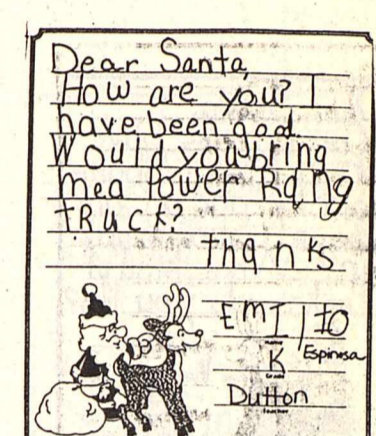 Dear Santa,
How are you? I
have been good.
Would you bring
me a Power Rang
tRuck?
thanks
EmIlIO
Name
Espinosa
K
Grade
Dutton
Teacher